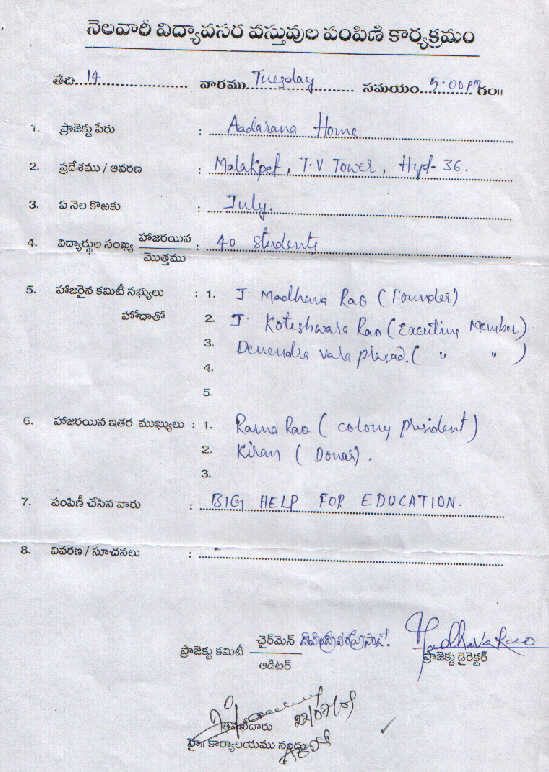 నెలవారీ విద్యాపసర వస్తువుల పంపిణి కార్యక్రమం
తేది 14 వారము Tuesday సమయం 5:00PM గం॥
1. ప్రాజెక్టు పేరు : Aadarana Home
2. ప్రదేశము / ఆవరణ : Malakpet, T.V Tower, Hyd-36.
3. ఏ నెల కొఱకు : July.
4. విద్యార్థుల సంఖ్య హాజరయిన : 40 students
మొత్తము
5. హాజరైన కమిటీ సభ్యులు : 1. J Madhava Rao (Founder)
హోదాతో 2. J. Koteshwara Rao (Executive Member)
3. Devendra vara prasad. ( " " )
4.
5.
6. హాజరయిన ఇతర ముఖ్యులు : 1. Rama Rao ( colony president)
2. Kiran ( Donar).
3.
7. పంపిణీ చేసిన వారు : BIG HELP FOR EDUCATION.
8. వివరణ / సూచనలు :
ప్రాజెక్టు కమిటీ చైర్‌మెన్
ఆడిటర్
ప్రాజెక్టు డైరెక్టర్
కార్యాలయము